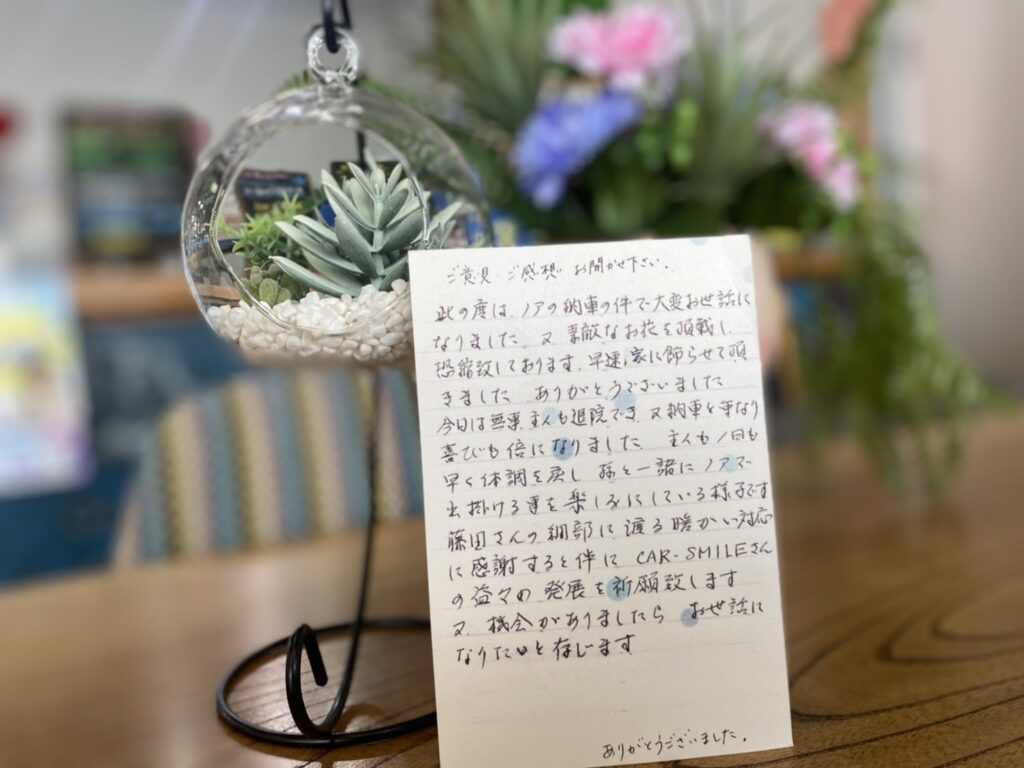 ご意見・ご感想 お聞かせ下さい。
此の度は、ノアの納車の件で大変お世話に
なりました。又、素敵なお花を頂戴し、
恐縮致しております。早速、家に飾らせて頂
きました ありがとうございました
今日は無事主人も退院でき、又納車と重なり
喜びも倍になりました、主人も1日も
早く体調を戻し 孫と一諸にノアで
出掛ける事を楽しみにしている様子です
藤田さんの細部に渡る暖かい対応
に感謝すると伴に CAR-SMILEさん
の益々の発展を祈願致します
又、機会がありましたら お世話に
なりたいと存じます
ありがとうございました。